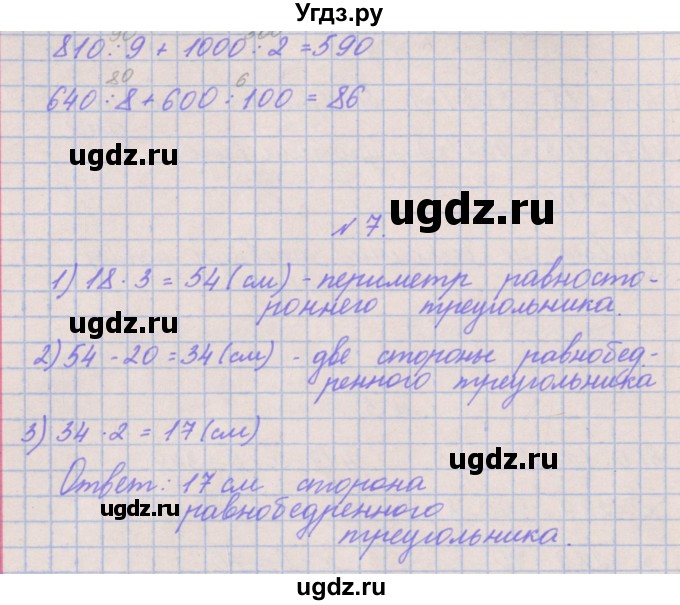 Угдз.ру
90 500
810 : 9 + 1000 : 2 = 590
80 6
640 : 8 + 600 : 100 = 86
ugdz.ru ugdz.ru
ugdz.ru
№ 7.
1) 18 · 3 = 54 (см) - периметр равносто-
роннего треугольника.
ugdz.ru
2) 54 - 20 = 34 (см) - две стороны равнобед-
ренного треугольника
3) 34 · 2 = 17 (см)
ugdz.ru
Ответ: 17 см сторона
ugdz.ru равнобедренного
треугольника.
ugdz.ru